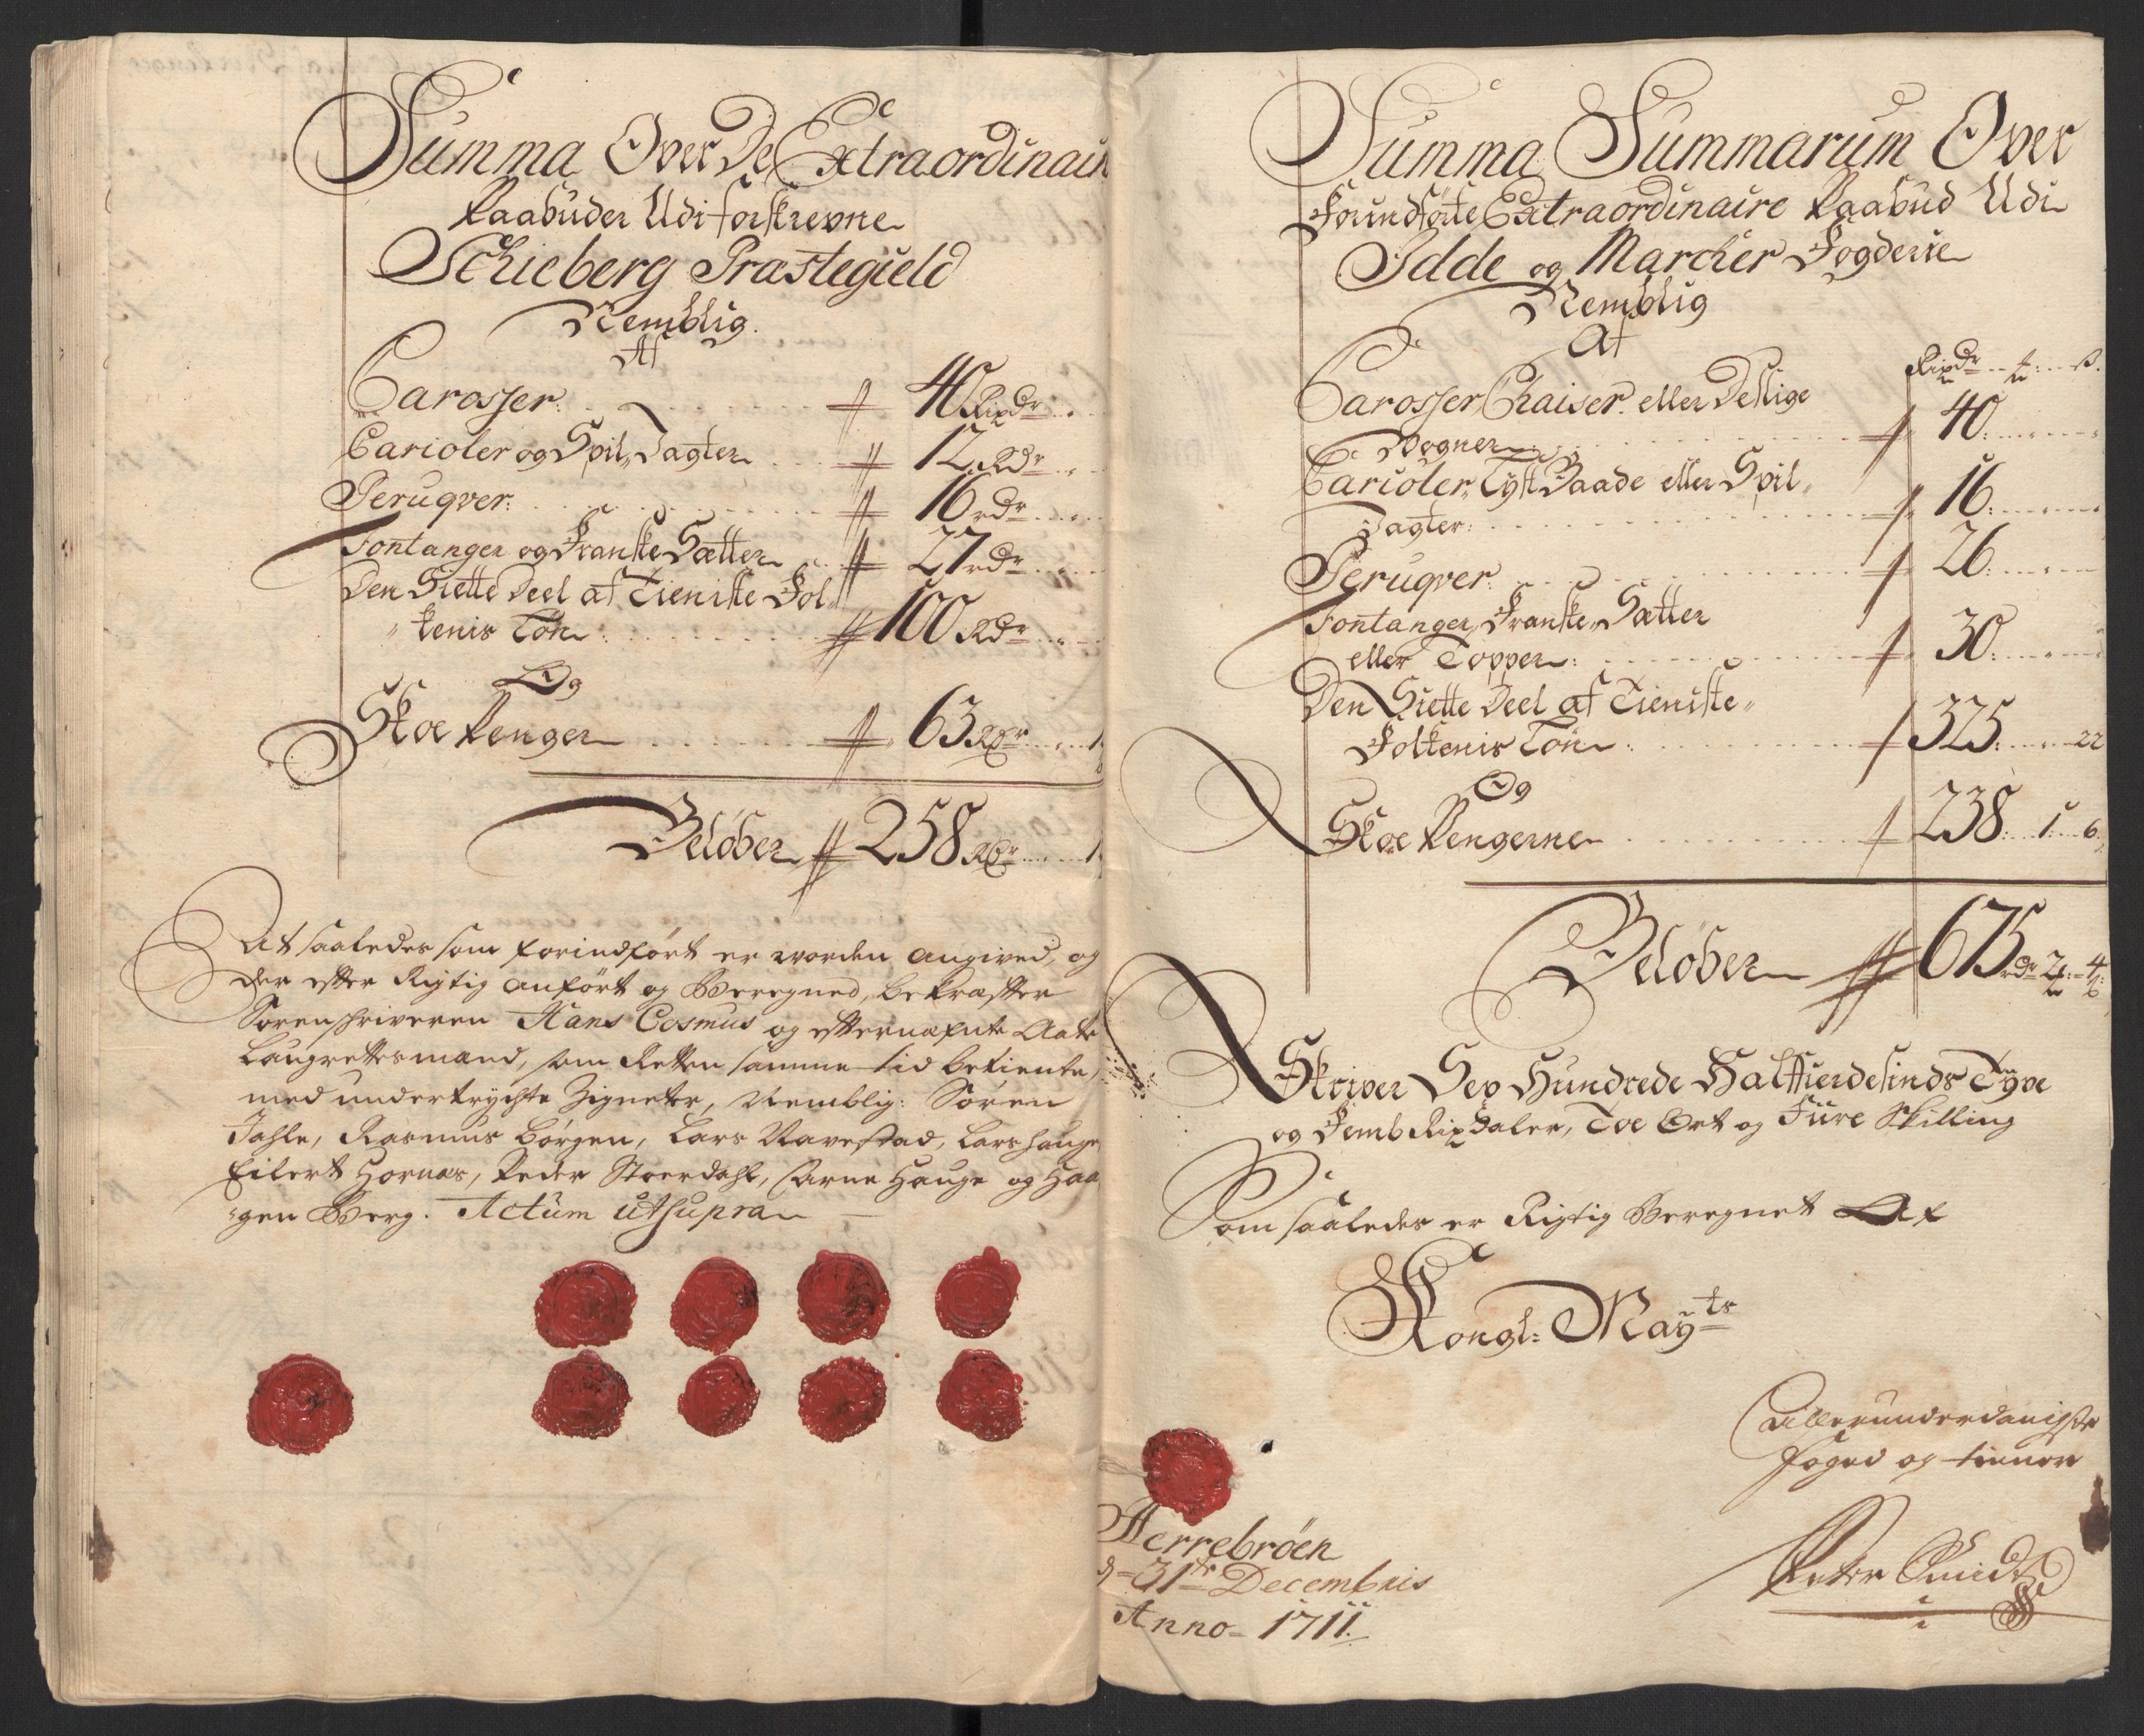 Summa Over De Extraordinair
Paabuder Udi forskrevne
Schieberg Præstegield
Nemblig.
Af
Carosser: 40 Rixdr
Carioler og Spil Jagter 12 Rdr
Peruqver: 16 rdr
Fontanger og Franske Sætter 27 rdr
Den Siette Deel af Tieniste Fol
kenis Løn: 100 Rdr
Og
Skoe Penger 63 Rdr 1
Beløber 258 Rdr 1
At saaledes som forindført er worden angived, og
der efter Rigtig anført og Beregned, bekræfter
Sorenskriveren Hans Cosmus og efternæfnte Aate
Laugrettesmænd, som Retten samme tid betiente,
med undertrychte Zigneter, Nemblig: Søren
Jahle, Rasmus Børgen, Lars Navestad, Lars Hauge
Eilert Hornæs, Peder Stoerdahl, Arne Hauge og Haa
gen Berg. Actum ut supra
Summa Summarum Over
Forindførte Extraordinaire Paabud Udi
Idde og Marcher Fogderie
Nemblig
Af
Rixdr ß.
Carosser, Chaiser eller Deslige
Wogner 40:
Carioler, Lyst Baade eller Spil
Jagter: 16:
Peruqver: 26:
Fontanger, Franske Sætter
eller Topper: 30:
Den Siette Deel af Tieniste
Folkenis Løn: 325: 22
Og
Skoe Pengerne 238: 1: 6
Beløber 675 rdr 2 4
Skriver Sex Hundrede Halffierdesinds Tyve
og Femb Rixdaler, Toe Ort og Fiire Skilling
Som saaledes er Rigtig Beregnet Af
Kongl: Mayts
Allerunderdanigste
foged og tienere
Peter
Herrebröen
d 31te Decembris
Anno 1711.